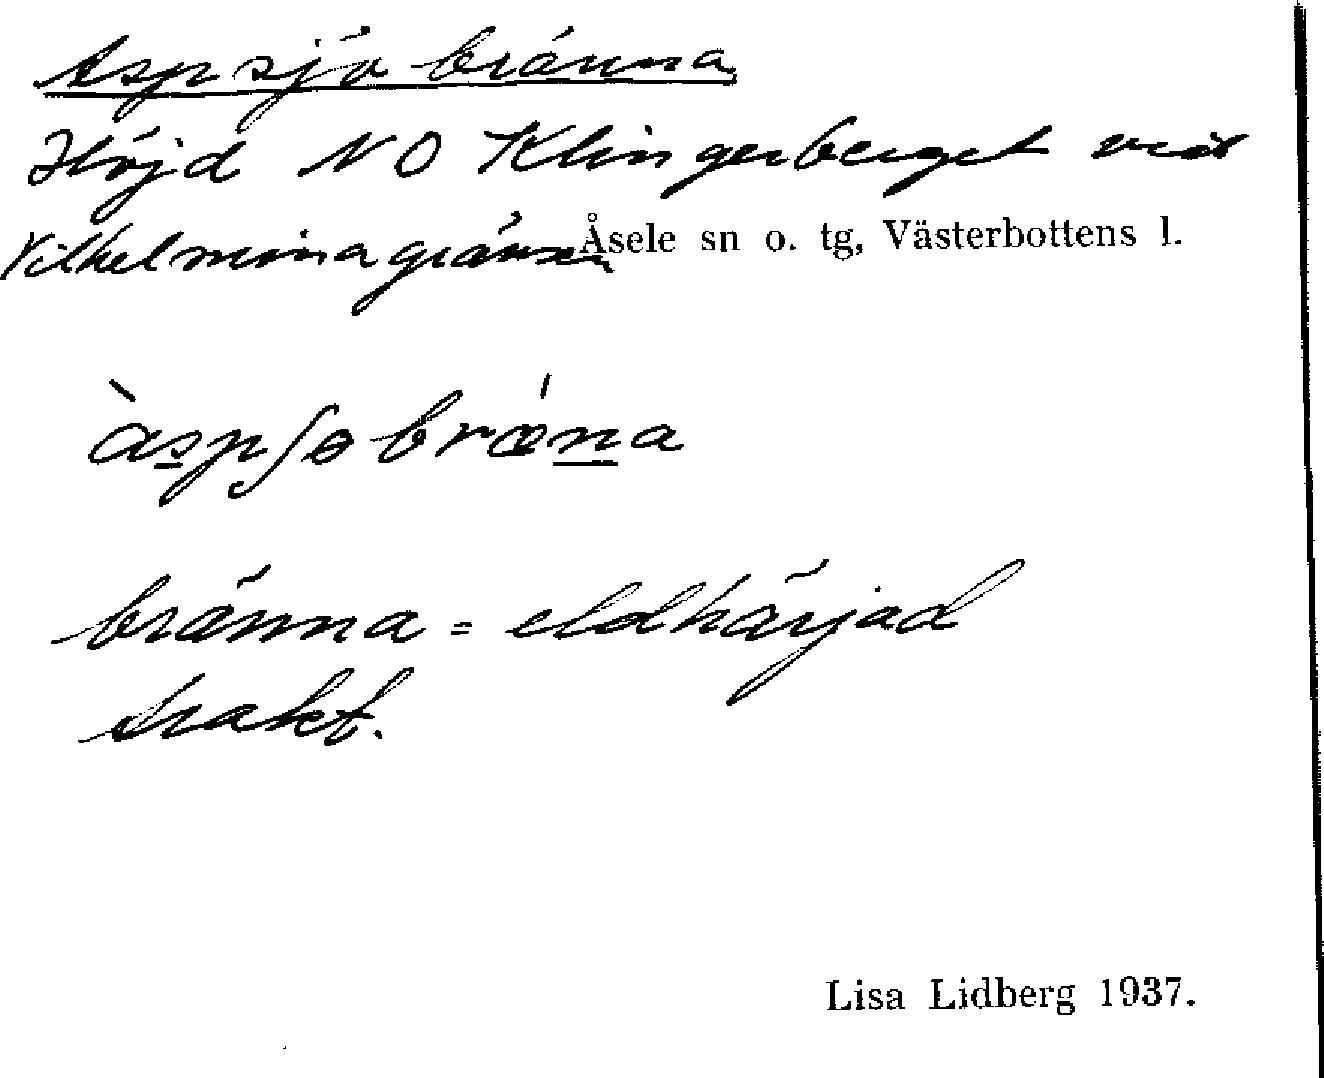 Aspsjöbränna
Höjd NO Klingerberget vid
Vilhelminagränsen Åsele sn o. tg, Västerbottens l.
àspʃɵbrǽna
bränna = eldhärjad
trakt.
Lisa Lidberg 1937.